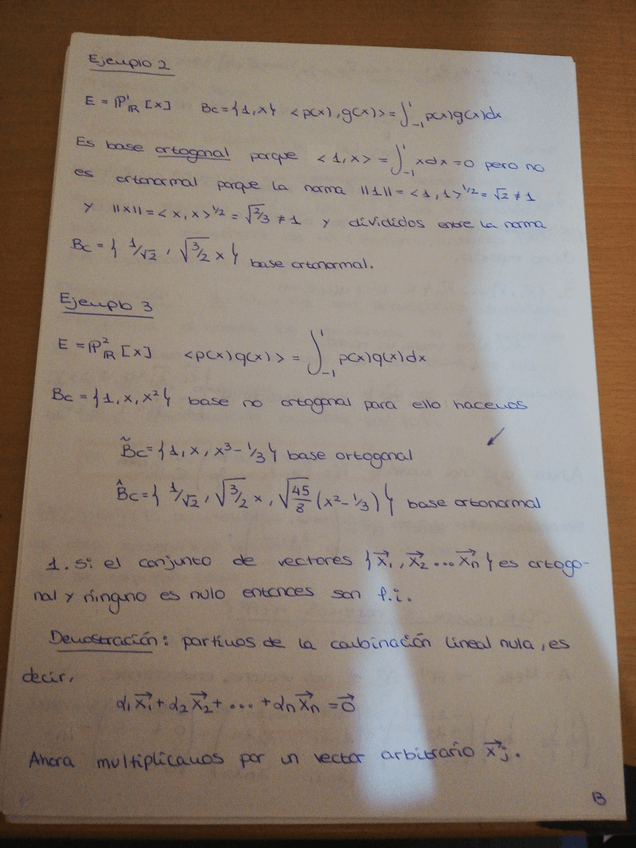 Ejemplo 2
E = ℙ¹_ℝ [x] Bc = {1, x} <p(x), g(x)> = ∫₋₁¹ p(x)g(x)dx
Es base ortogonal porque <1, x> = ∫₋₁¹ xdx = 0 pero no
es ortonormal porque la norma ||1|| = <1, 1>^1/2 = √2 ≠ 1
y ||x|| = <x, x>^1/2 = √2/3 ≠ 1 y divididos entre la norma
Bc = { 1/√2, √3/2 x } base ortonormal.
Ejemplo 3
E = ℙ²_ℝ [x] <p(x)q(x)> = ∫₋₁¹ p(x)q(x)dx
Bc = {1, x, x²} base no ortogonal para ello hacemos
B̃c = {1, x, x³ - 1/3} base ortogonal
B̂c = { 1/√2, √3/2 x, √45/8 (x² - 1/3) } base ortonormal
1. Si el conjunto de vectores {x⃗₁, x⃗₂ ... x⃗n} es ortogo-
nal y ninguno es nulo entonces son f.i.
Demostración: partimos de la combinación lineal nula, es
decir,
α₁x⃗₁ + α₂x⃗₂ + ... + αnx⃗n = 0⃗
Ahora multiplicamos por un vector arbitrario x⃗j.